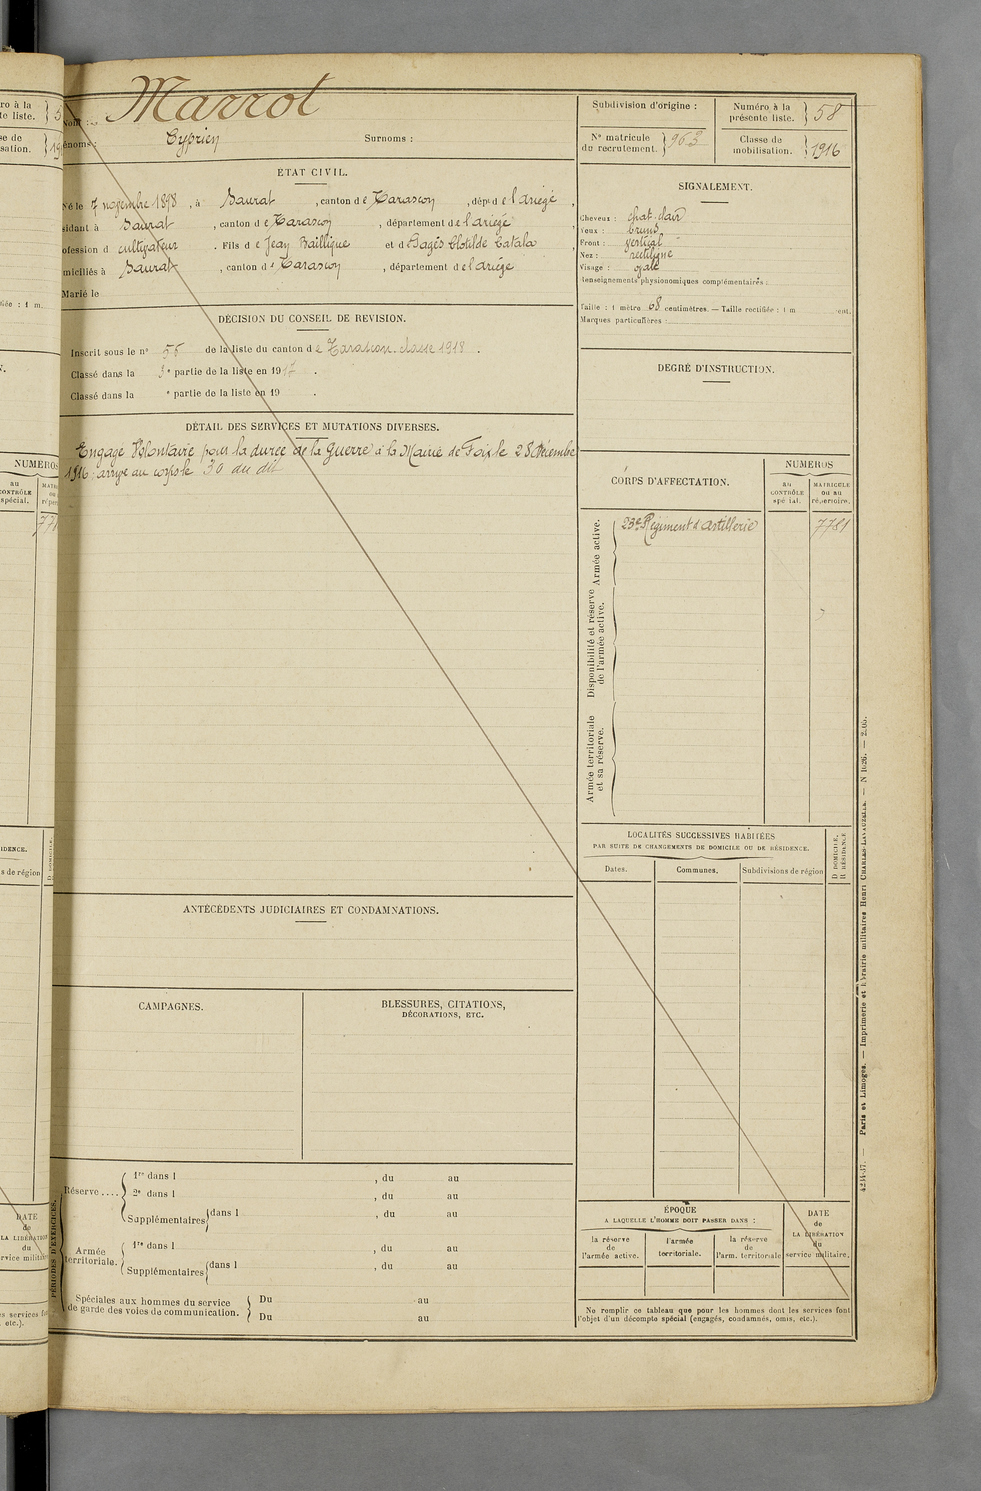 Nom : Marrot
Prénoms : Cyprien Surnoms :
Subdivision d'origine :
Numéro à la présente liste. 58
N° matricule du recrutement. 963
Classe de mobilisation. 1916
ETAT CIVIL.
Né le 7 novembre 1898, à Saurat, canton de Tarascon, dépt de l'ariège,
sidant à Saurat, canton de Tarascon, département de l'ariège
ofession d cultivateur. Fils de Jean Baillique et de Pagès Clotilde Catala
miciliés à Saurat, canton de Tarascon, département de l'ariège
Marié le
SIGNALEMENT.
Cheveux : chat. clair
Yeux : bruns
Front : vertical
Nez : rectiligne
Visage : ovale
Renseignements physionomiques complémentaires :
Taille : 1 mètre 68 centimètres. — Taille rectifiée : 1 m. cent.
Marques particulières :
DÉCISION DU CONSEIL DE REVISION.
Inscrit sous le n° 56 de la liste du canton de Tarascon. classe 1918.
Classé dans la 3e partie de la liste en 1917.
Classé dans la e partie de la liste en 19 .
DEGRÉ D'INSTRUCTION.
DÉTAIL DES SERVICES ET MUTATIONS DIVERSES.
Engagé Volontaire pour la durée de la Guerre à la Mairie de Foix le 28 décembre
1916. arrivé au corps le 30 du dit
CORPS D'AFFECTATION.
NUMEROS
au CONTRÔLE spécial.
MATRICULE ou au répertoire.
Armée active.
23e Régiment d'artillerie 7781
Disponibilité et réserve de l'armée active.
Armée territoriale et sa réserve.
LOCALITÉS SUCCESSIVES HABITÉES
PAR SUITE DE CHANGEMENTS DE DOMICILE OU DE RÉSIDENCE.
Dates. Communes. Subdivisions de région
D DOMICILE, R RÉSIDENCE
ANTÉCÉDENTS JUDICIAIRES ET CONDAMNATIONS.
CAMPAGNES.
BLESSURES, CITATIONS,
DÉCORATIONS, ETC.
PÉRIODES D'EXERCICES.
Réserve ....
1re dans l , du au
2e dans l , du au
Supplémentaires dans l , du au
Armée territoriale.
1re dans l , du au
Supplémentaires dans l , du au
Spéciales aux hommes du service
de garde des voies de communication.
Du au
Du au
ÉPOQUE
A LAQUELLE L'HOMME DOIT PASSER DANS :
la réserve de l'armée active.
l'armée territoriale.
la réserve de l'arm. territoriale
DATE de LA LIBÉRATION du service militaire.
Ne remplir ce tableau que pour les hommes dont les services font
l'objet d'un décompte spécial (engagés, condamnés, omis, etc.).
Paris et Limoges. — Imprimerie et librairie militaires Henri CHARLES-LAVAUZELLE.